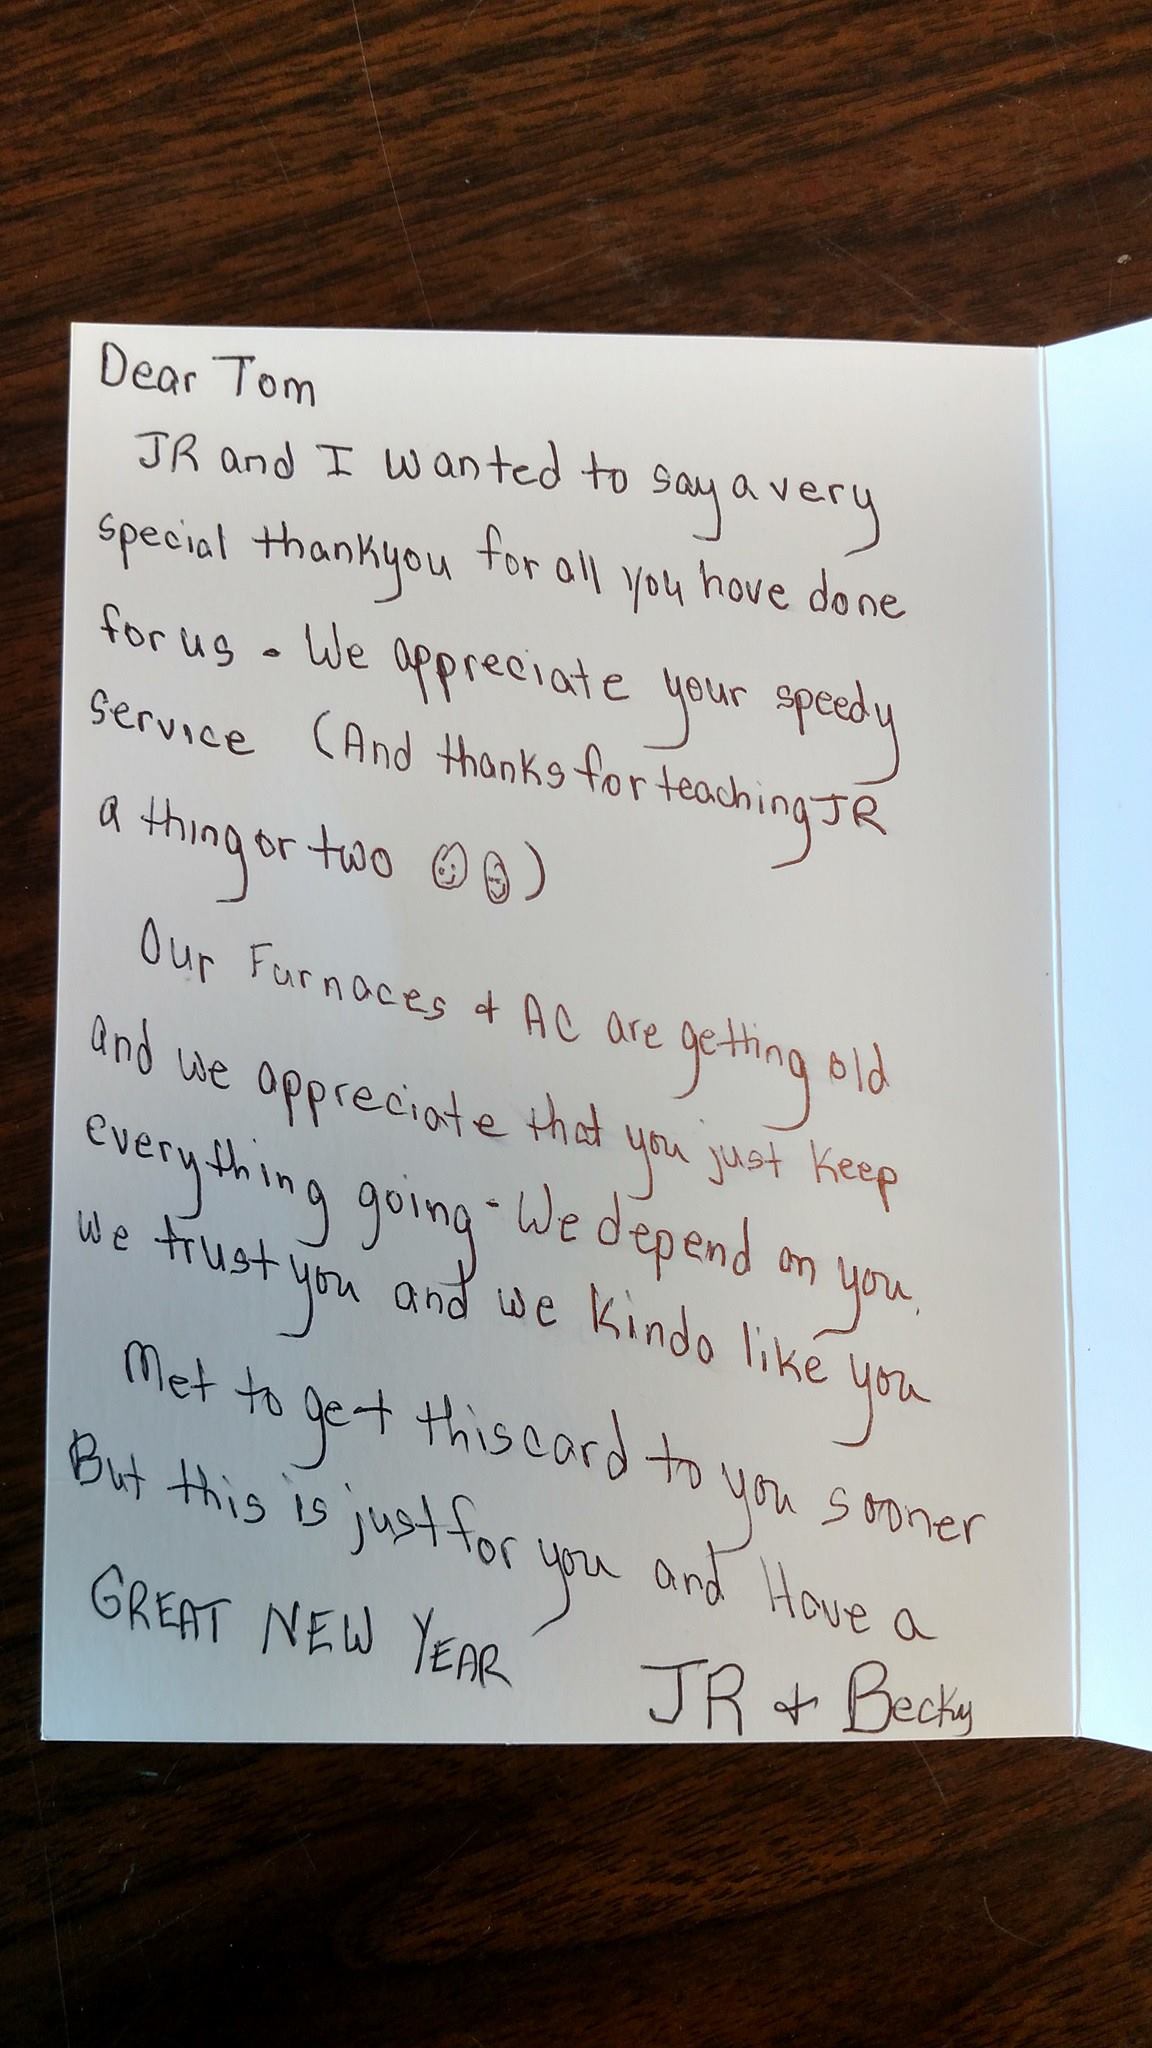 Dear Tom
JR and I wanted to say a very
special thankyou for all you have done
for us - We appreciate your speedy
service (And thanks for teaching JR
a thing or two )
Our Furnaces & AC are getting old
and we appreciate that you just keep
everything going - We depend on you,
we trust you and we kinda like you
Met to get this card to you sooner
But this is just for you and Have a
GREAT NEW YEAR
JR & Becky